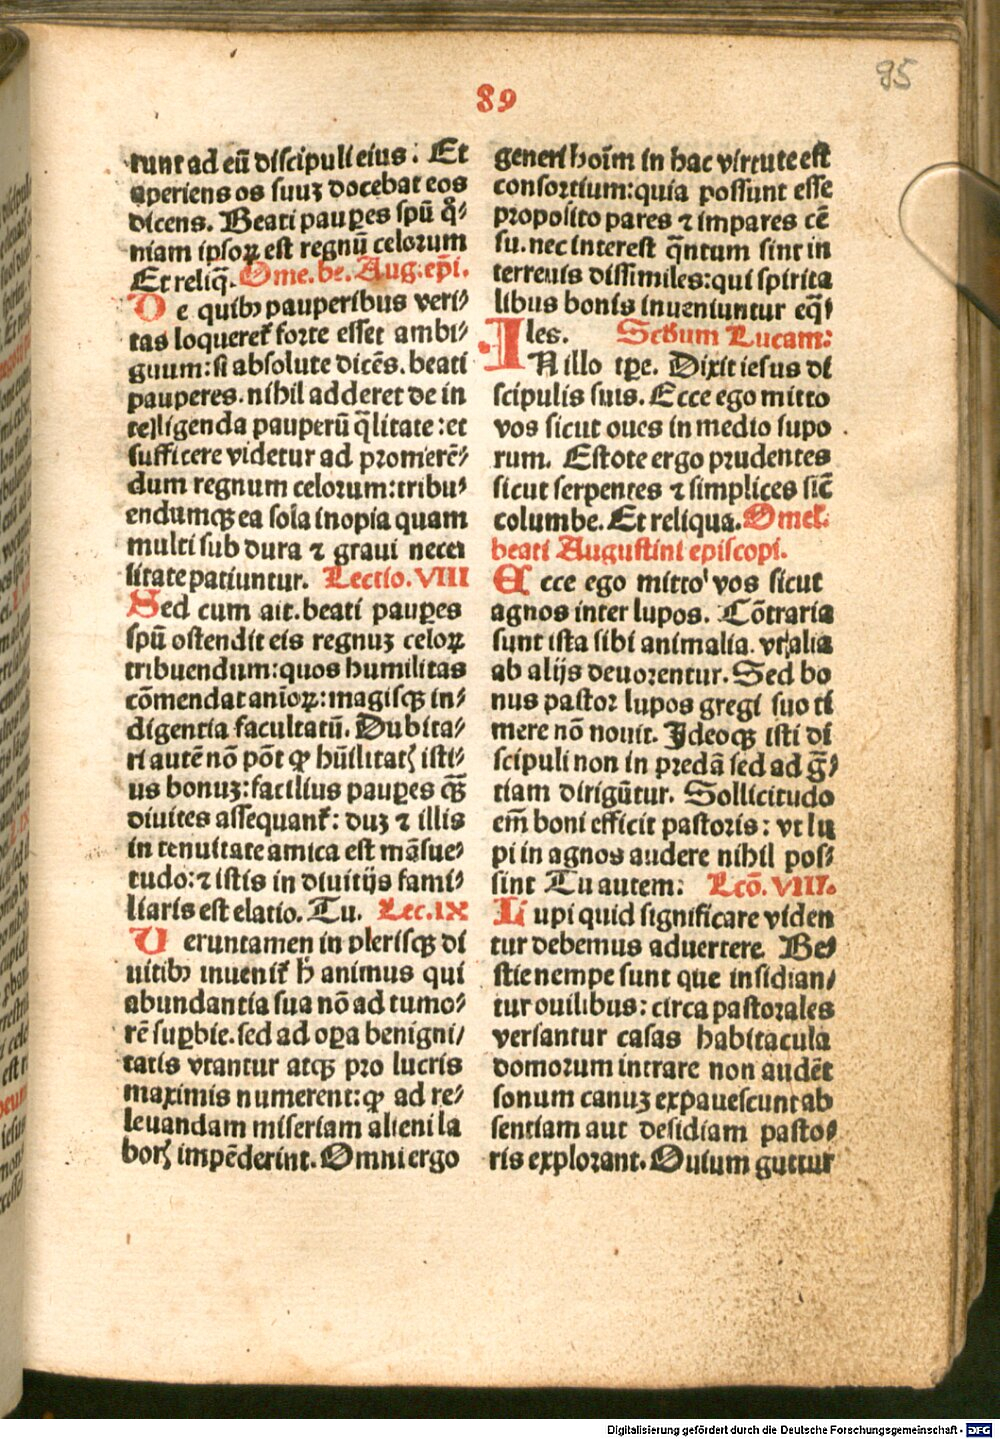 95
89
runt ad eū discipuli eius. Et
aperiens os suuʒ docebat eos
dicens. Beati pauꝑes spū q̄
niam ipsoꝝ est regnū celorum
Et reliq̄. Ome. be. Aug. ep̄i.
De quibꝰ pauperibus veri⸗
tas loqueret̄ forte esset ambi⸗
guum: si absolute dicēs. beati
pauperes. nihil adderet de in
telligenda pauperū q̄litate: et
sufficere videtur ad promerē⸗
dum regnum celorum: tribu⸗
endumqꝫ ea sola inopia quam
multi sub dura ⁊ graui necei
sitate patiuntur. Lectio. VIII
Sed cum ait. beati pauꝑes
spū ostendit eis regnuʒ celoꝝ
tribuendum: quos humilitas
cōmendat anīoꝝ: magisqꝫ in⸗
digentia facultatū. Dubita⸗
ri autē nō pōt ꝙ hūilitatꝭ isti⸗
us bonuʒ: facilius pauꝑes qꝫ̄
diuites assequant̄: duʒ ⁊ illis
in tenuitate amica est māsue⸗
tudo: ⁊ istis in diuitijs fami⸗
liaris est elatio. Tu. Lec. IX
Ueruntamen in plerisqꝫ di
uitibꝰ inuenit̄ h̄ animus qui
abundantia sua nō ad tumo⸗
rē suꝑbie. sed ad oꝑa benigni⸗
tatis vtantur atqꝫ pro lucris
maximis numerent: ꝙ ad re⸗
leuandam miseriam alieni la
borꝭ impēderint. Omni ergo
generi hoīm in hac virtute est
consortium: quia possunt esse
proposito pares ⁊ impares cē
su. nec interest q̄ntum sint in
terrenis dissimiles: qui spirita
libus bonis inueniuntur eq̄⸗
les. Scd̄um Lucam:
IN illo tꝑe. Dixit iesus di
scipulis suis. Ecce ego mitto
vos sicut oues in medio lupo
rum. Estote ergo prudentes
sicut serpentes ⁊ simplices sic̄
columbe. Et reliqua. Omel.
beati Augustini episcopi.
Ecce ego mitto vos sicut
agnos inter lupos. Cōtraria
sunt ista sibi animalia. vt alia
ab alijs deuorentur. Sed bo
nus pastor lupos gregi suo ti
mere nō nouit. Ideoqꝫ isti di
scipuli non in predā sed ad gr̄⸗
tiam dirigūtur. Sollicitudo
em̄ boni efficit pastoris: vt lu
pi in agnos audere nihil pos⸗
sint Tu autem: Lcō. VIII.
Lupi quid significare viden
tur debemus aduertere. Be⸗
stie nempe sunt que insidian⸗
tur ouilibus: circa pastorales
versantur casas habitacula
domorum intrare non audēt
sonum canuʒ expauescunt ab
sentiam aut desidiam pasto⸗
ris explorant. Ouium guttur
Digitalisierung gefördert durch die Deutsche Forschungsgemeinschaft - DFG